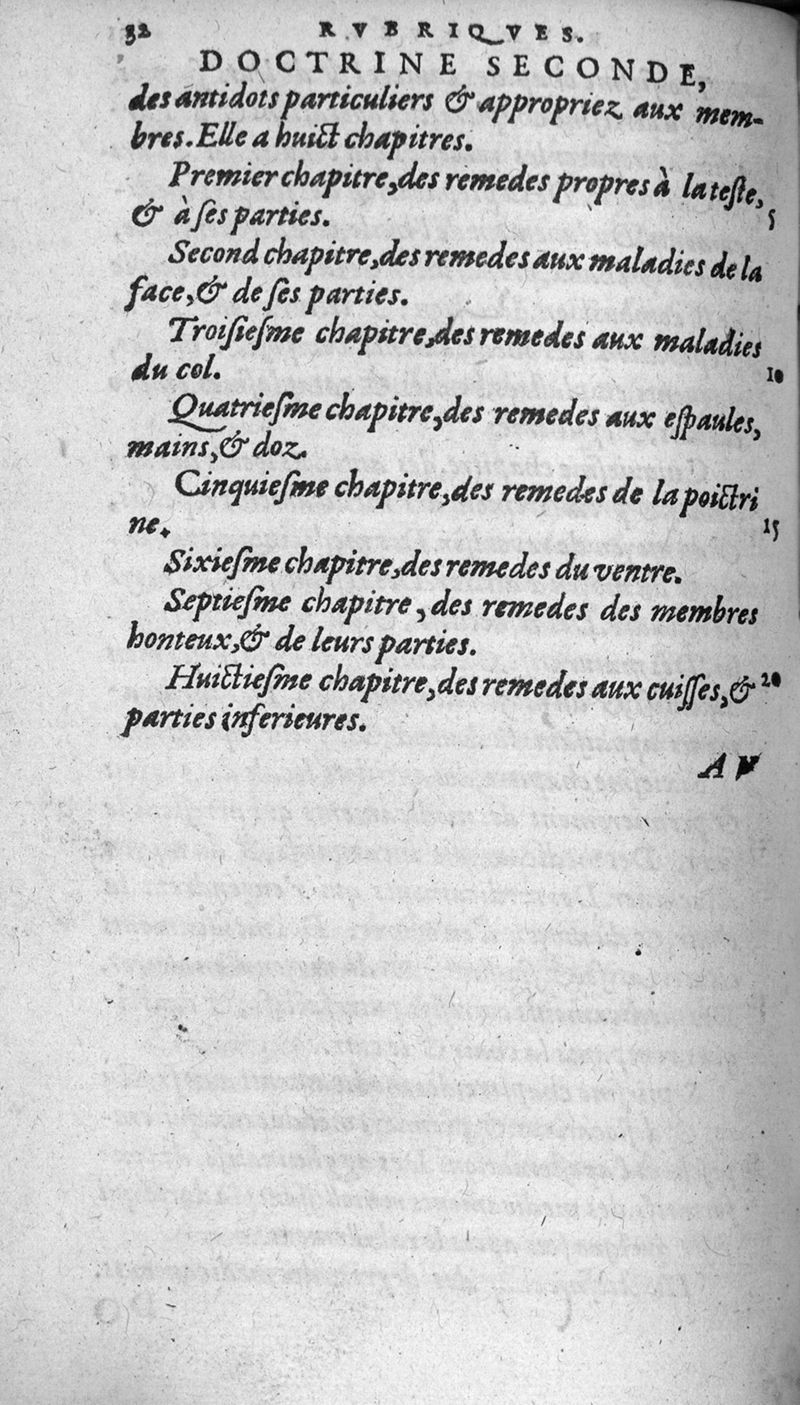 32 RVBRIQVES.
DOCTRINE SECONDE,
des antidots particuliers & appropriez aux mem-
bres. Elle a huict chapitres.
Premier chapitre, des remedes propres à la teſte,
& à ſes parties. 5
Second chapitre, des remedes aux maladies de la
face, & de ſes parties.
Troiſieſme chapitre, des remedes aux maladies
du col. 10
Quatrieſme chapitre, des remedes aux eſpaules,
mains, & doz.
Cinquieſme chapitre, des remedes de la poictri
ne. 15
Sixieſme chapitre, des remedes du ventre.
Septieſme chapitre, des remedes des membres
honteux, & de leurs parties.
Huictieſme chapitre, des remedes aux cuiſſes, & 20
parties inferieures.